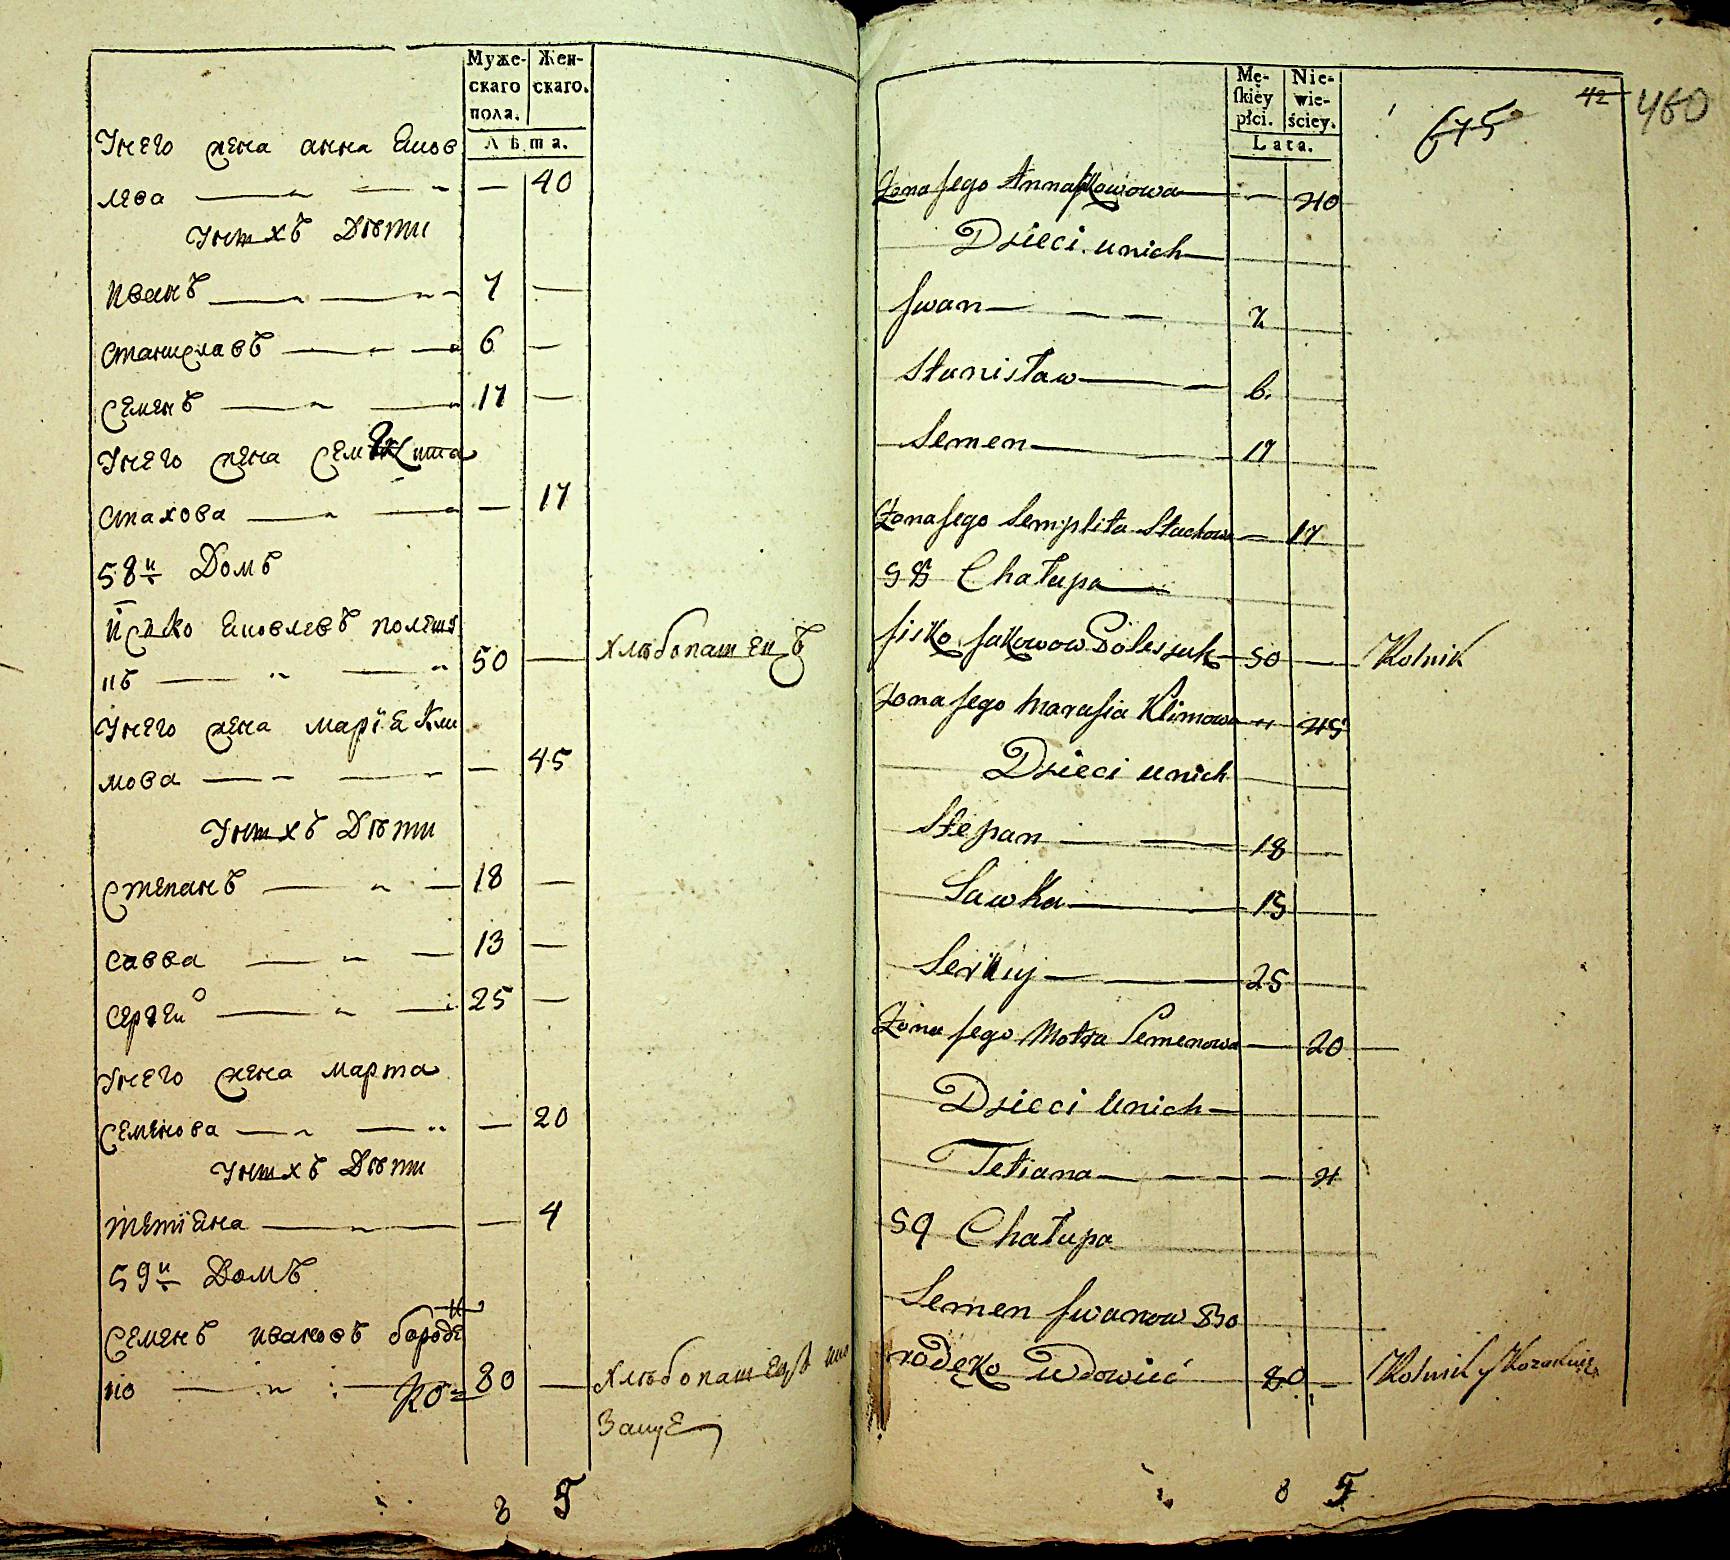 Муже-
скаго
пола.
Жен-
скаго.
Лѣта.
Унего жена анна Яков
лева 40
Унихъ Дѣти
Иванъ 7
Станиславъ 6
Семенъ 17
Унего жена
Стахова 17
58й Домъ
Яковлевъ полещу
50 хлѣбопашецъ
Унего жена Марія Кли
мова 45
Унихъ Дѣти
Степанъ 18
Савва 13
Сергей 25
Унего жена Марта
Семенова 20
Унихъ Дѣти
Тетіяна 4
59й Домъ
Семенъ Ивановъ
ко 80 хлѣбопашецъ
8 5
Mę-
ſkiéy
płci.
Nie-
wie-
ściey.
Lata.
675
42
460
Zona Jego Anna Jakowowa 40
Dzieci unich
Jwan 7
Stanisław 6
Semen 17
Zona Jego Semplita Stachowa 17
58 Chałupa
Jsko Jakowow Poleszuk 50 Rolnik
Zona Jego Marusia Klimowa 45
Dzieci unich
Stepan 18
Sawka 13
Serhiy 25
Zona Jego Motra Semenowa 20
Dzieci Unich
Tetiana 4
59 Chałupa
Semen Jwanow Bo
rodęko Wdowieć 80 Rolnik y
8 5